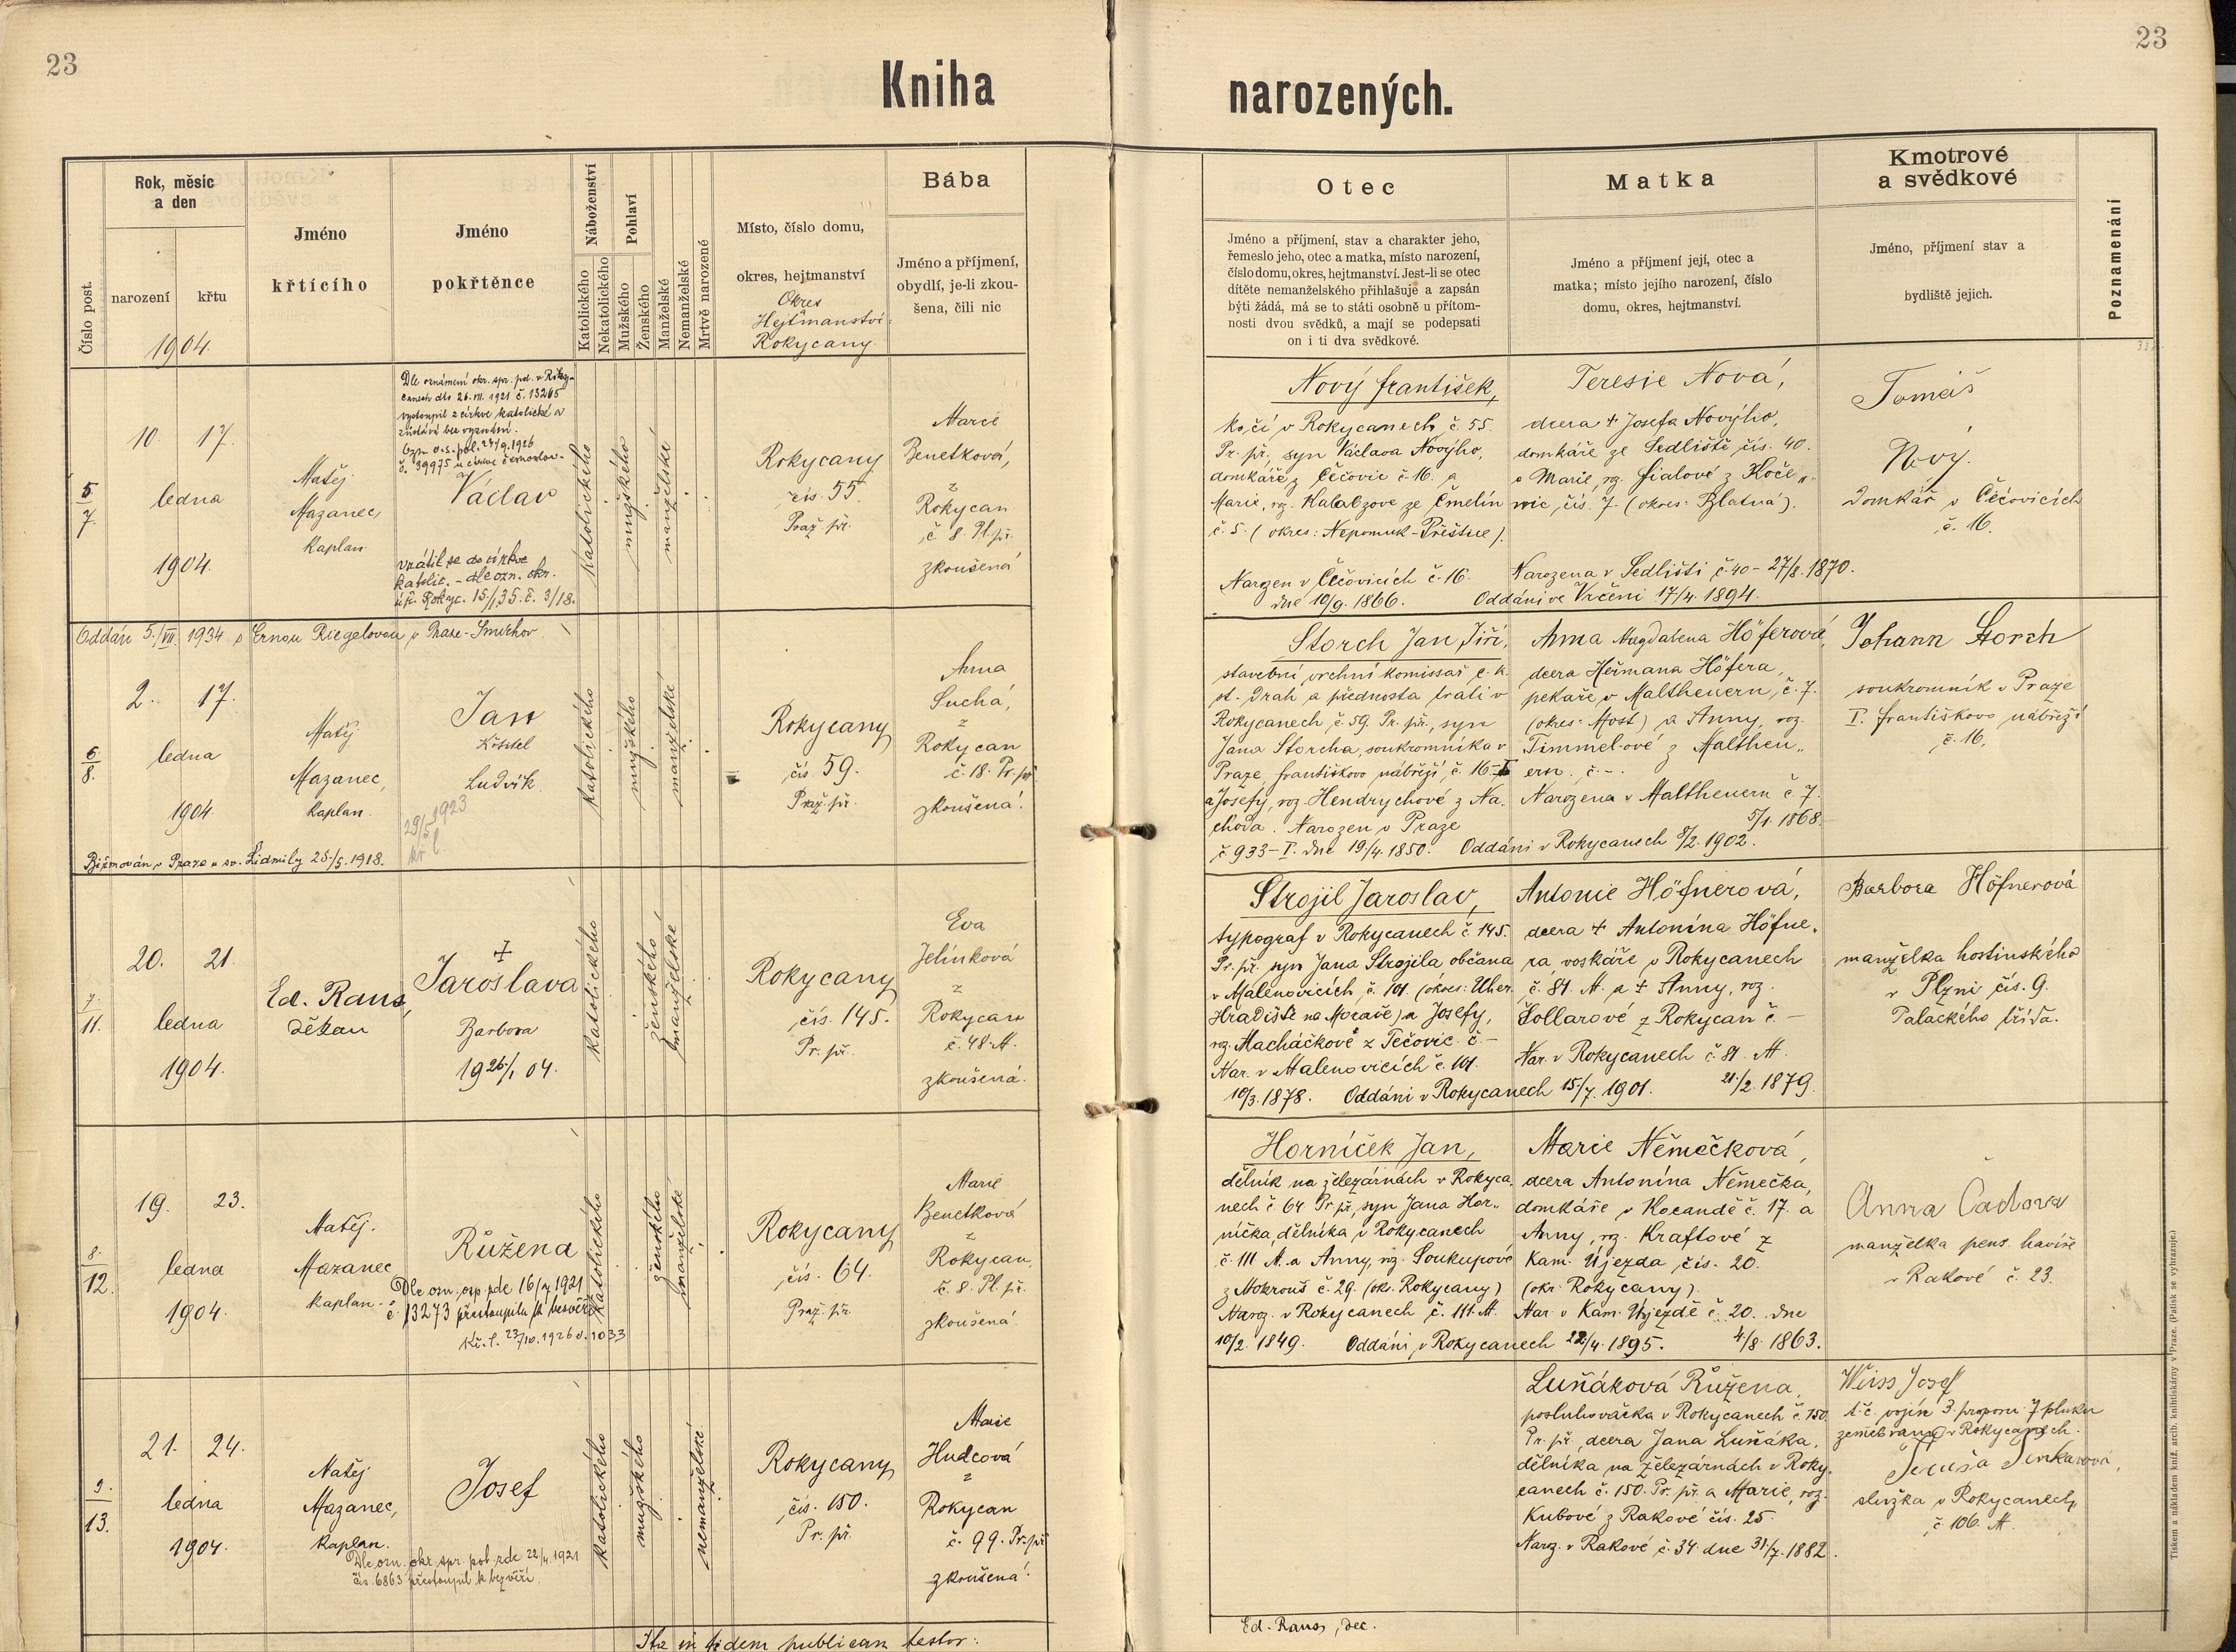 23
23
Kniha narozených.
Číslo post.
Rok, měsíc
a den
narození
křtu
1904.
Jméno
křtícího
Jméno
pokřtěnce
Náboženství
Katolického
Nekatolického
Pohlaví
Mužského
Ženského
Manželské
Nemanželské
Mrtvě narozené
Místo, číslo domu,
okres, hejtmanství
Okres
Hejtmanství:
Rokycany
Bába
Jméno a příjmení,
obydlí, je-li zkou-
šena, čili nic
Otec
Jméno a příjmení, stav a charakter jeho,
řemeslo jeho, otec a matka, místo narození,
číslo domu, okres, hejtmanství. Jest-li se otec
dítěte nemanželského přihlašuje a zapsán
býti žádá, má se to státi osobně u přítom-
nosti dvou svědků, a mají se podepsati
on i ti dva svědkové.
Matka
Jméno a příjmení její, otec a
matka; místo jejího narození, číslo
domu, okres, hejtmanství.
Kmotrové
a svědkové
Jméno, příjmení stav a
bydliště jejich.
Poznamenání
5
7.
10. 17.
ledna
1904.
Matěj
Mazanec,
kaplan
Dle oznámení okr. spr. pol. v Roky-
canech dto 26.VII.1921 č. 13265
vystoupil z církve katolické a
zůstává bez vyznání.
č. 39975
Václav
vrátil se do církve
katolic. - dle ozn. okr.
úř. Rokyc. 15./1.35. č. 3/18.
katolického
mužského
manželské
Rokycany
čís. 55.
Praž. př.
Marie
Benetková,
z
Rokycan
č. 8. Pl. př.
zkoušená
Nový František,
kočí v Rokycanech č. 55.
Pr. př., syn Václava Nového,
domkáře z Čečovic č. 16. a
Marie, roz. Kalabzove ze Čmelín
č. 5. (okres: Nepomuk-Přeštice).
Narozen v Čečovicích č. 16.
dne 10/9. 1866.
Teresie Nová,
dcera + Josefa Nového,
domkáře ze Sedliště, čís. 40.
a Marie, roz. Fialové z Koče„
wic, čís. 7. (okres: Blatná).
Narozena v Sedlišti č. 40 - 27/8. 1870.
Oddáni ve Vrčeni 17/4. 1894.
Tomáš
Nový.
domkář v Čečovicích
č. 16.
Oddán 5./VII. 1934 s Ernou Riegelovou v Praze-Smíchov.
6
8.
2. 17.
ledna
1904.
Matěj
Mazanec,
kaplan.
Jan
Křtitel
Ludvík
29/5 1923
kř. l
Biřmován v Praze u sv. Lidmily 25./5. 1918.
katolického
mužského
manželské
Rokycany
čís. 59.
Praž. př.
Anna
Suchá,
z
Rokycan
č. 18. Pr. př.
zkoušená.
Storch Jan Jiří,
stavební vrchní komissař c. k.
st. drah a přednosta trati v
Rokycanech č. 59. Pr. př., syn
Jana Storcha, soukromníka v
Praze, Františkovo nábřeží, č. 16-I
a Josefy, roz. Hendrychové z Ná-
choda. Narozen v Praze
č. 933-I. dne 19/4. 1850.
Anna Magdalena Höferová,
dcera Heřmana Höfera,
pekaře v Malthevern č. 7.
(okres: Most) a Anny, roz.
Timmel-ové z Malthev„
ern. č. -.
Narozena v Malthevern č. 7.
5/1. 1868.
Oddáni v Rokycanech 8/2. 1902.
Johann Storch
soukromník v Praze
I. Františkovo nábřeží
č. 16.
7.
11.
20. 21.
ledna
1904.
Ed. Raus,
děkan
+
Jaroslava
Barbora
19 26/1 04.
katolického
ženského
manželské
Rokycany
čís. 145.
Pr. př.
Eva
Jelínková
z
Rokycan
č. 48. M.
zkoušená.
Strojil Jaroslav,
typograf v Rokycanech č. 145.
Pr. př. syn Jana Strojila občana
v Malenovicích, č. 101. (okres: Uher.
Hradiště na Moravě) a Josefy,
roz. Macháčkové z Tečovic. č. -
Nar. v Malenovicích č. 101.
10/3. 1878.
Antonie Höfnerová,
dcera + Antonína Höfne-
ra, voskáře v Rokycanech
č. 81. M. a + Anny, roz.
Šollarové z Rokycan č. -
Nar. v Rokycanech č. 81. M.
21./2. 1879.
Oddáni v Rokycanech 15/7. 1901.
Barbora Höfnerová
manželka hostinského
v Plzni čís. 9.
Palackého třída.
8.
12.
19. 23.
ledna
1904.
Matěj.
Mazanec
kaplan.
Růžena
Dle ozn. osp. zde 16/7 1921
č. 13273 přestoupila k bezvěří.
Kř. l. 23/10. 1926 d. 1033
katolického
ženského
manželské
Rokycany
čís. 64.
Praž. př.
Marie
Benetková
z
Rokycan,
č. 8. Pl. př.
zkoušená.
Horníček Jan,
dělník na železárnách v Rokyca-
nech č. 64 Pr. př., syn Jana Hor„
níčka, dělníka v Rokycanech
č. 111 M. a Anny, roz. Soukupové
z Mokrouš č. 29. (ok. Rokycany)
Naroz. v Rokycanech č. 111. M.
10/2. 1849.
Marie Němečková,
dcera Antonína Němečka,
domkáře v Kocandě č. 17. a
Anny, roz. Kraftové z
Kam. Újezda, čís. 20.
(okr. Rokycany).
Nar. v Kam. Újezdě č. 20. dne
4/8. 1863.
Oddáni v Rokycanech 22/4. 1895.
Anna Čadova
manželka pens. havíře
v Rakové č. 23.
9.
13.
21. 24.
ledna
1904.
Matěj
Mazanec,
kaplan.
Josef
Dle ozn. okr. spr. pol. zde 22/4. 1921
čís. 6863 přestoupil k bezvěří.
katolického
mužského
nemanželské
Rokycany
čís. 150.
Pr. př.
Marie
Hudcová
z
Rokycan
č. 99. Pr. př.
zkoušená.
Luňáková Růžena,
posluhovačka v Rokycanech č. 150
Pr. př., dcera Jana Luňáka,
dělníka na železárnách v Roky-
canech č. 150. Pr. př. a Marie, roz.
Kubové z Rakové čís. 25.
Naroz. v Rakové č. 34. dne 31/7. 1882.
Weiss Josef
t. č. vojín 3. praporu 7 pluku
zeměbrany v Rokycanech.
služka v Rokycanech,
č. 106. M.
Ita in fidem publicam testor:
Ed. Raus, dec.
Tiskem a nákladem kníž. arcib. knihtiskárny v Praze. (Patisk se vyhrazuje.)